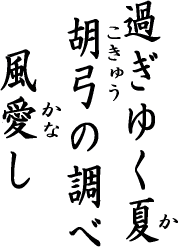 過ぎゆく夏
胡弓の調べ
風愛し
か
こきゅう
かな